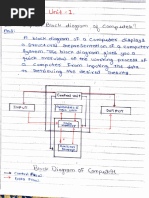 Unit - 1.
Block diagram of Computer?
A block diagram of a computer displays
a structural representation of a computer
system. The block diagram gives you a
quick overview of the working process of
a computer from inputing the data
to retrieving the desired results.
Control unit
INPUT
OUTPUT
Block Diagram of Computer
Control Flow